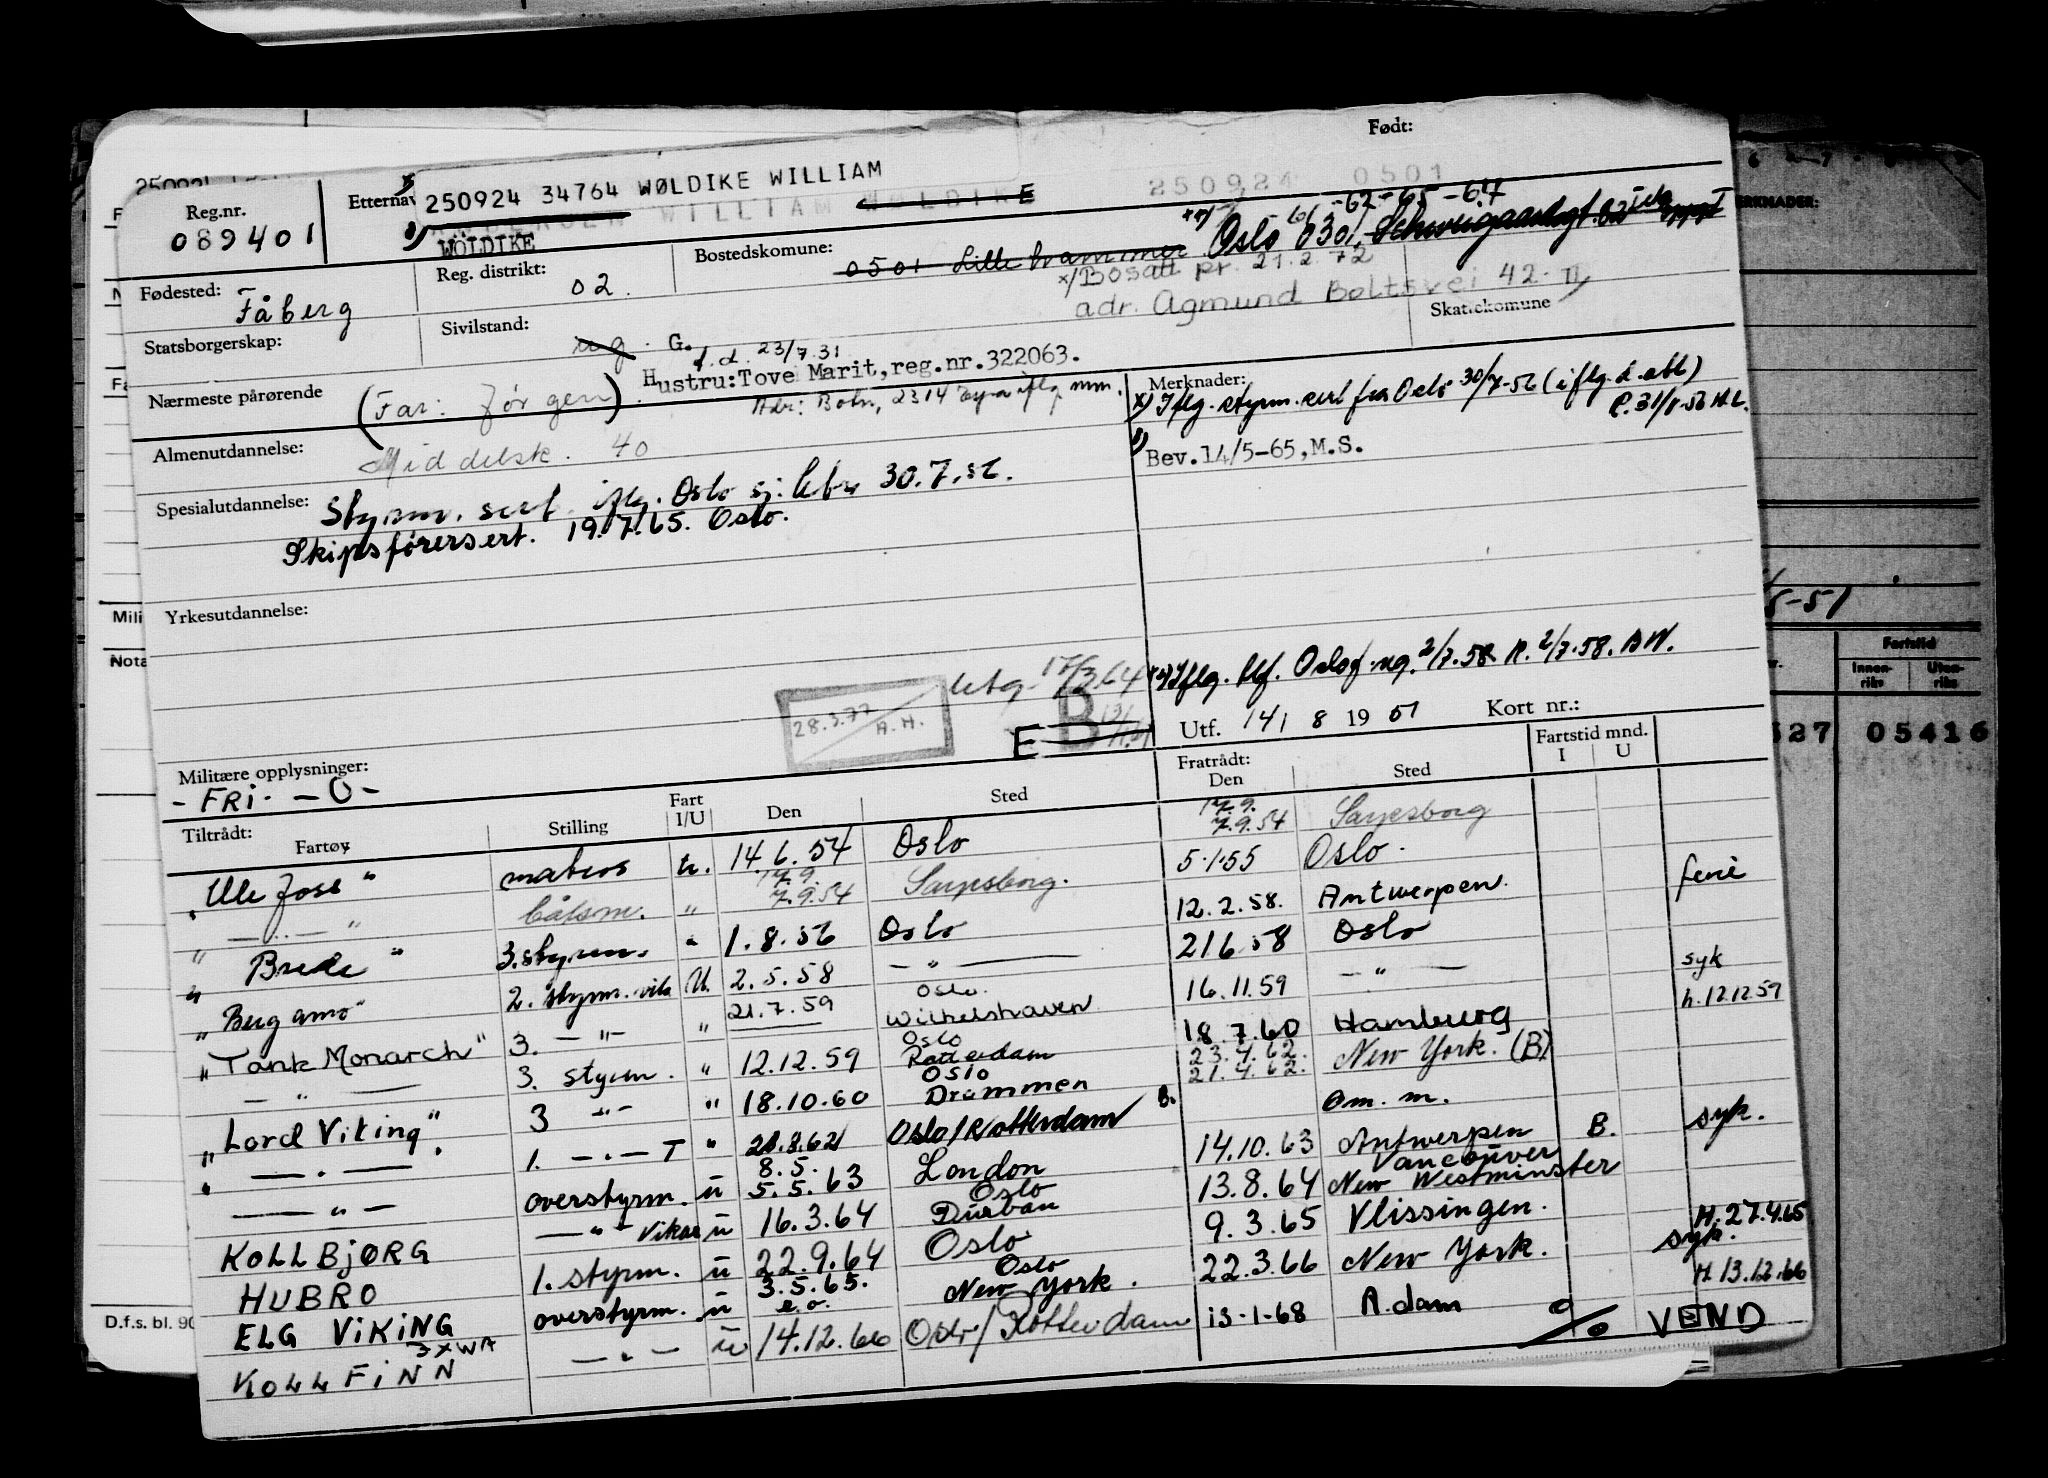 Født:
Reg.nr.
089401
Etternav
250924 34764 WØLDIKE WILLIAM
WILLIAM WØLDIKE
250924 0501
WÖLDIKE
-62-65-64
Reg. distrikt:
02
Bostedskommune:
0501 Lillehammer Oslo 0301
x/Bosatt pr. 21.2.72
adr. Agmund Boltsvei 42-II
Fødested:
Fåberg
Statsborgerskap:
Sivilstand:
ug. G.
Skattekomune
Nærmeste pårørende
(Far: Jørgen)
f.d. 23/7.31
Hustru: Tove Marit, reg.nr.322063.
Merknader:
x) Iflg. styrm.sert fra Oslo 30/7-56 (iflg. d. abl)
Almenutdannelse:
Middelsk. 40
Bev.14/5-65,M.S.
Spesialutdannelse:
Styrm. sert. iflg. Oslo sj. 30.7.56.
Skipsførersert. 19.7.65. Oslo.
Yrkesutdannelse:
Iflg. tlf. Oslo 2/7.58 R. 2/7.58.
utg. 17/3 64
28.3.77
A.H.
B
E
Utf. 14/ 8 19 51 Kort nr.:
Militære opplysninger:
- FRI - - O -
Fratrådt:
Fartstid mnd.
Tiltrådt:
Fartøy Stilling Fart I/U Den Sted Den Sted I U
"Ulefoss" matros u. 14.6.54 Oslo 17.9. 7.9.54 Sarpsborg
" - " - " båtsm. " 17.9. 7.9.54 Sarpsborg. 5.1.55 Oslo.
" Brede " 3. styrm. " 1.8.56 Oslo 12.2.58. Antwerpen. ferie
" Bergamo" 2. styrm. vik U. 2.5.58 - " - 21 6 58 Oslo
"Tank Monarch" 3. - " - " 21.7.59 Oslo. Wilhelshaven 16.11.59 - " - syk h. 12.12.59
- " - 3. styrm. " 12.12.59 Oslo Rotterdam 18.7.60 Hamburg
"Lord Viking" 3 - " - " 18.10.60 Oslo Drammen 23.4.62. 21.4.62. New York. (B)
- " - 1. - " - T " 21.8.62 Oslo/Rotterdam B. Om. m.
- " - overstyrm. u 8.5. 5.5.63 London 14.10.63 Antwerpen B. syk.
KOLLBJØRG - " - Vikar u 16.3.64 Oslo Durban 13.8.64 Vancouver New Westminster
HUBRO 1. styrm. u 22.9.64 Oslo 9.3.65 Vlissingen. H. 27.4.65
ELG VIKING overstyrm. u 3.5.65. Oslo New York. 22.3.66 New York. syk. H 13.12.66
KOLLFINN 3XWA - " - u 14.12.66 Oslo/Rotterdam 13-1-68 A.dam
% VEND
D.f.s. bl. 90
Mili
Nota
6 7
ERKNADER:
5-51
Fartstid
Innen-riks
Uten-riks
527 05416